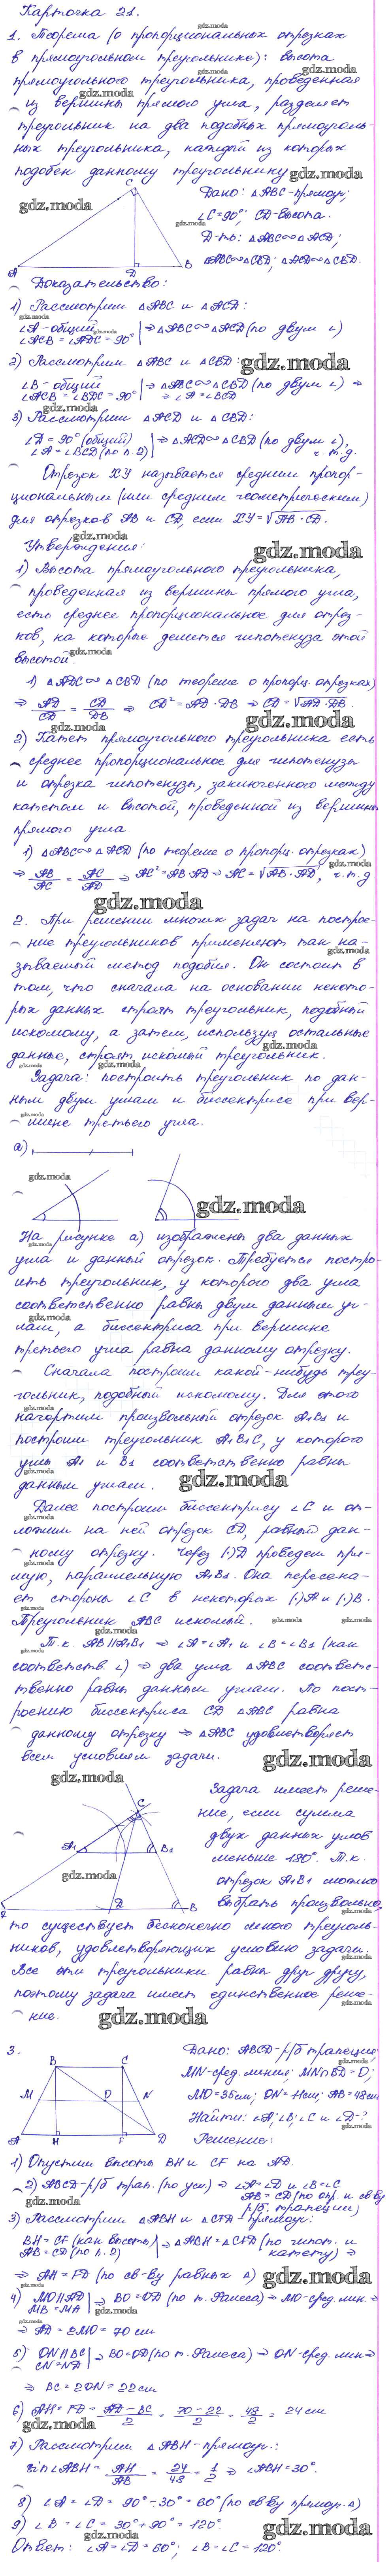 Карточка 21.
1. Теорема (о пропорциональных отрезках
в прямоугольном треугольнике): высота
прямоугольного треугольника, проведенная
из вершины прямого угла, разделяет
треугольник на два подобных прямоуголь-
ных треугольника, каждый из которых
подобен данному треугольнику
Дано: △ABC-прямоуг;
∠C=90°; CD-высота.
Д-ть: △ABC∾△ACD;
△ABC∾△CBD; △ACD∾△CBD.
C
A D B
Доказательство:
1) Рассмотрим △ABC и △ACD:
∠A-общий
∠ACB=∠ADC=90° | ⇒△ABC∾△ACD(по двум ∠)
2) Рассмотрим △ABC и △CBD:
∠B-общий
∠ACB=∠BDC=90° | ⇒ △ABC∾△CBD (по двум ∠) ⇒
⇒ ∠A=∠BCD
3) Рассмотрим △ACD и △CBD:
∠D=90°(общий)
∠A=∠BCD(по п.2) | ⇒ △ACD∾△CBD(по двум ∠),
ч.т.д.
Отрезок XY называется средним пропор-
циональным (или средним геометрическим)
для отрезков AB и CD, если XY=√AB·CD.
Утверждения:
1) Высота прямоугольного треугольника,
проведенная из вершины прямого угла,
есть среднее пропорциональное для отрез-
ков, на которые делится гипотенуза этой
высотой.
1) △ADC∾△CBD (по теореме о пропорц. отрезках)
⇒ AD/CD = CD/DB ⇒ CD²=AD·DB ⇒ CD=√AD·DB.
2) Катет прямоугольного треугольника есть
среднее пропорциональное для гипотенузы
и отрезка гипотенузы, заключенного между
катетом и высотой, проведенной из вершины
прямого угла.
1) △ABC∾△ACD (по теореме о пропорц. отрезках)
⇒ AB/AC = AC/AD ⇒ AC²=AB·AD ⇒ AC=√AB·AD, ч.т.д
2. При решении многих задач на построе-
ние треугольников применяют так на-
зываемый метод подобия. Он состоит в
том, что сначала на основании некото-
рых данных строят треугольник, подобный
искомому, а затем, используя остальные
данные, строят искомый треугольник.
Задача: построить треугольник по дан-
ным двум углам и биссектрисе при вер-
шине третьего угла.
а)
На рисунке а) изображены два данных
угла и данный отрезок. Требуется постро-
ить треугольник, у которого два угла
соответственно равны двум данным уг-
лам, а биссектриса при вершине
третьего угла равна данному отрезку.
Сначала построим какой-нибудь треу-
гольник, подобный искомому. Для этого
начертим произвольный отрезок A1B1 и
построим треугольник A1B1C, у которого
углы A1 и B1 соответственно равны
данным углам.
Далее построим биссектрису ∠C и от-
ложим на ней отрезок CD, равный дан-
ному отрезку. Через (·)D проведем пря-
мую, параллельную A1B1. Она пересека-
ет стороны ∠C в некоторых (·)A и (·)B.
Треугольник ABC искомый.
Т.к. AB||A1B1 ⇒ ∠A=∠A1 и ∠B=∠B1 (как
соответств. ∠) ⇒ два угла △ABC соответс-
твенно равны данным углам. По пост-
роению биссектриса CD △ABC равна
данному отрезку ⇒ △ABC удовлетворяет
всем условиям задачи.
C
A1 B1
A D B
Задача имеет реше-
ние, если сумма
двух данных углов
меньше 180°. Т.к.
отрезок A1B1 можно
выбрать произвольно,
то существует бесконечно много треуголь-
ников, удовлетворяющих условию задачи.
Все эти треугольники равны друг другу,
поэтому задача имеет единственное реше-
ние.
3.
B C
M O N
A H F D
Дано: ABCD-р/б трапеция;
MN-сред. линия; MN∩BD=O;
MO=35см; ON=11см; AB=48см
Найти: ∠A;∠B;∠C и ∠D-?
Решение:
1) Опустим высоты BH и CF на AD
2) ABCD-р/б трап. (по усл) ⇒ ∠A=∠D и ∠B=∠C
AB=CD(по опр. и св-ву
р/б трапеции)
3) Рассмотрим △ABH и △CFD-прямоуг.:
BH=CF (как высоты)
AB=CD(по п.2) | ⇒ △ABH=△CFD (по гипот. и
катету) ⇒
⇒ AH=FD (по св-ву равных △)
4) MO||AD
MB=MA | ⇒ BO=OD(по т. Фалеса) ⇒ MO-сред.лин. ⇒
⇒ AD=2MO=70см
5) ON||BC
CN=ND | ⇒ BO=OD(по т. Фалеса) ⇒ ON-сред.лин ⇒
⇒ BC=2ON=22см
6) AH=FD= AD-BC/2 = 70-22/2 = 48/2 = 24см
7) Рассмотрим △ABH-прямоуг.:
sin∠ABH = AH/AB = 24/48 = 1/2 ⇒ ∠ABH=30°.
8) ∠A=∠D=90°-30°=60°(по св-ву прямоуг.△)
9) ∠B=∠C=30°+90°=120°.
Ответ: ∠A=∠D=60°; ∠B=∠C=120°.
gdz.moda